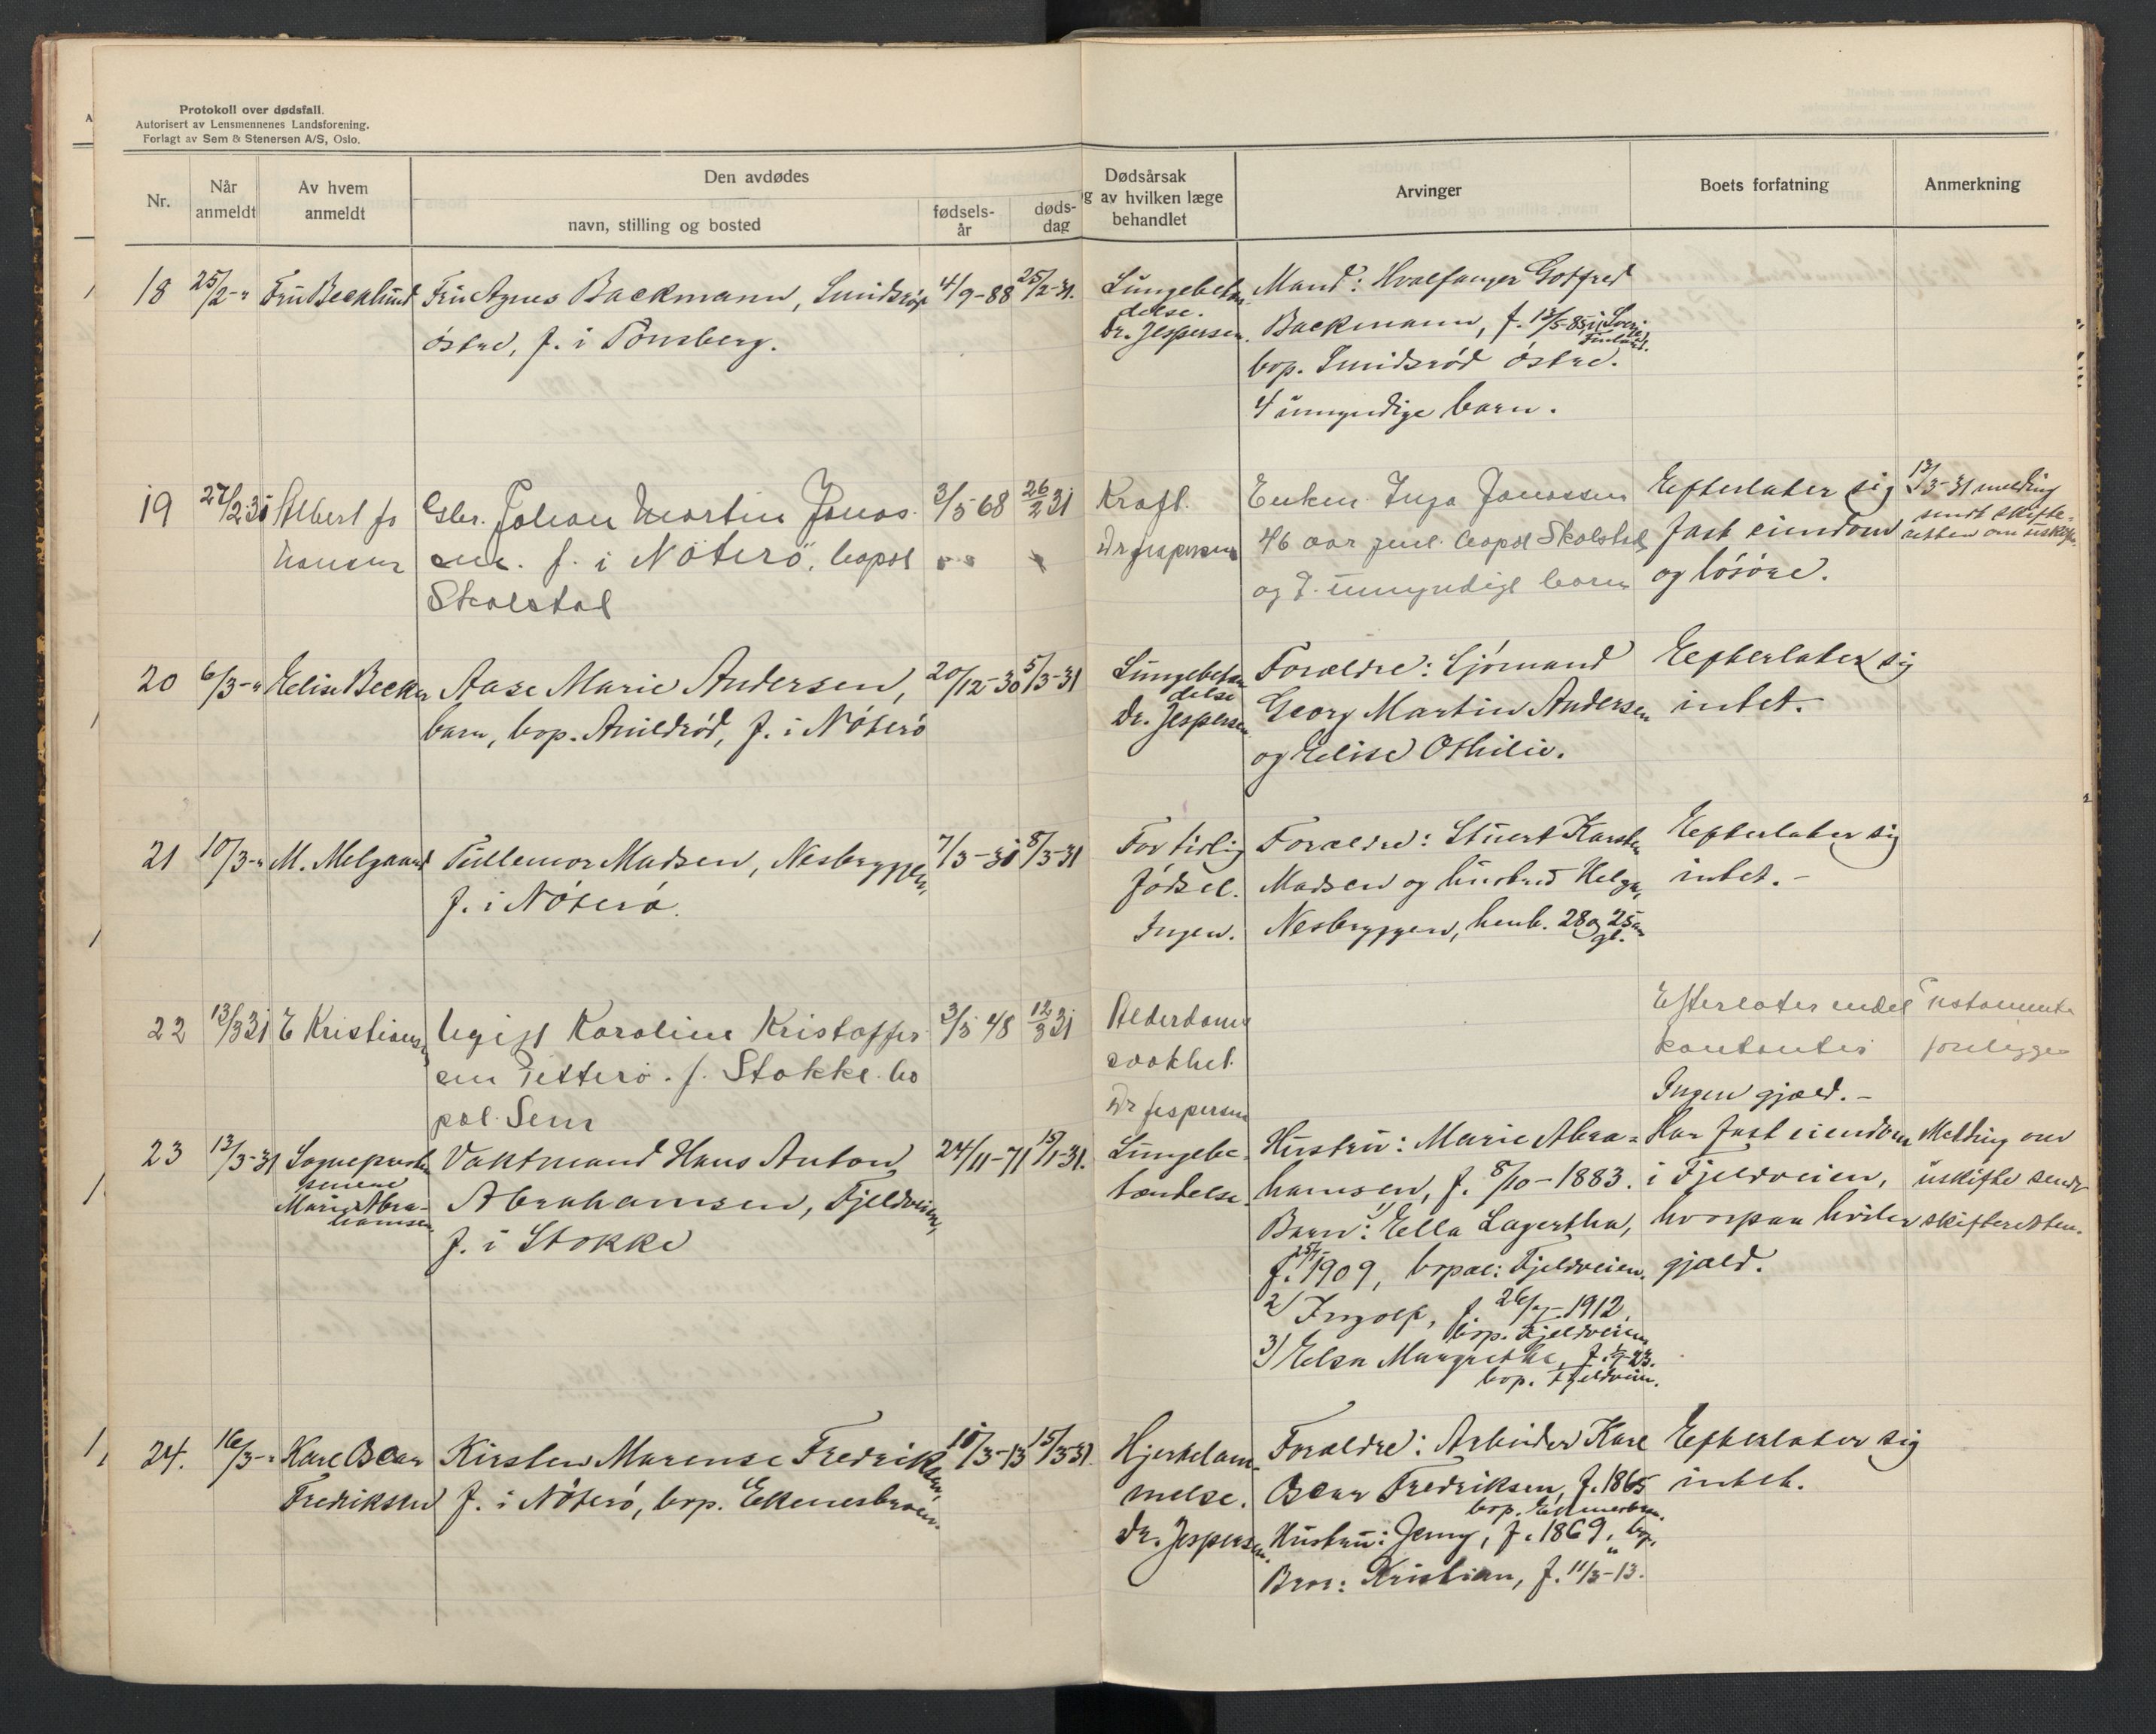 Protokoll over dødsfall.
Autorisert av Lensmennenes Landsforening.
Forlagt av Sem & Stenersen A/S, Oslo.
Nr.
Når anmeldt
Av hvem anmeldt
Den avdødes
navn, stilling og bosted
fødsels-år
døds-dag
Dødsårsak
og av hvilken læge
behandlet
Arvinger
Boets forfatning
Anmerkning
18 25/2-" Fru Becklund Fru Agnes Backmann, Smidsrød 4/9-88 25/2-31.
østre, f. i Tønsberg.
Lungebetændelse.
Dr. Jespersen.
Mand: Hvalfanger Gotfred
Backmann, f. 13/5-85, i
Finland.
bop. Smidsrød østre.
4 umyndige barn.
19 27/2 31 Albert Johansen
Gbr. Johan Martin Jonassen. f. i Nøterø, bopel
Skolstal
3/5 68 26/2 31
Kræft.
Dr Jespersen
Enken Inga Jonassen
46 aar gml. bopel Skolstal
og 7 umyndige barn
Efterlater sig
fast eiendom
og løsøre.
13/3-31 melding
sendt skifte-
retten om uskifte.
20 6/3-" Elise Becker Aase Marie Andersen, 20/12-30 5/3-31
barn, bop. Arildrød, f. i Nøterø
Lungebetændelse
Dr. Jespersen
Foreldre: Sjømand
Georg Martin Andersen
og Elise Othilie.
Efterlater sig
intet.
21 10/3-" M. Melgaard Tullemor Madsen, Nesbryggen, 7/3-31 8/3-31
f. i Nøterø.
For tidlig
fødsel.
Ingen.
Foreldre: Stuert Karsten
Madsen og hustru Helga,
Nesbryggen, henh. 28 og 25 aar
gl.
Efterlater sig
intet.-
22 13/3 31 E Kristiansen Ugift Karoline Kristoffersen 3/5 48 12/3 31
f. Stokke bo
pel. Sem
Alderdoms
svakhet
Dr Jespersen
Efterlater endel
kontanter
Ingen gjæld.-
Testamente
foreligger
23 13/3-31 Sogneprest
Marie Abrahamsen
Vaktmand Hans Anton 24/11-71 15/1-31.
Abrahamsen, Fjeldveien,
f. i Stokke
Lungebe-
tændelse
Hustru: Marie Abra-
hamsen, f. 8/10-1883.
Barn: 1) Ella Lagertha,
f. 1909, bopel: Fjeldveien.
2) Ingolf, f. 26/7-1912,
bop. Fjeldveien
3) Elsa Margrethe, f. 23.
bop. Fjeldveien.
Har fast eiendom
i Fjeldveien,
hvorpaa hviler
gjæld.
Melding om
uskifte sendt
skifteretten.
24. 16/3-" Karl Oscar
Fredriksen
Kirsten Marense Fredriksen, 10/3-13 15/3-31.
f. i Nøterø, bop. Ekenesbroen.
Hjertelam-
melse.
Dr. Jespersen.
Foreldre: Arbeider Karl
Oscar Fredriksen, f. 1865
bop. Ekenesbroen.
Hustru: Jenny, f. 1869, bop.
"
Bror: Kristian, f. 11/3-13.
Efterlater sig
intet.